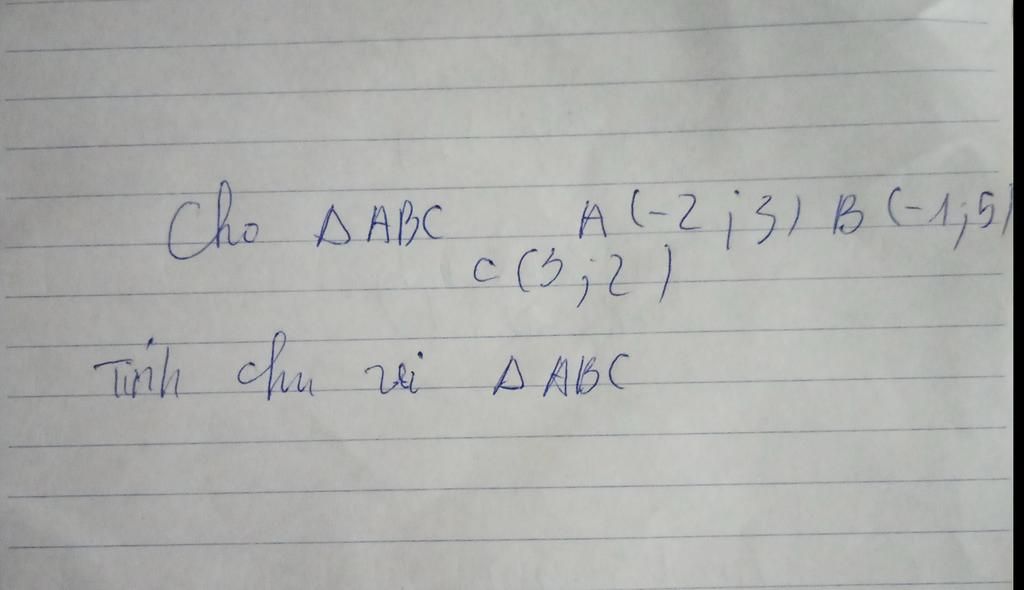 Cho ΔABC A(-2;3) B(-1;5)
C(3;2)
Tính chu vi ΔABC